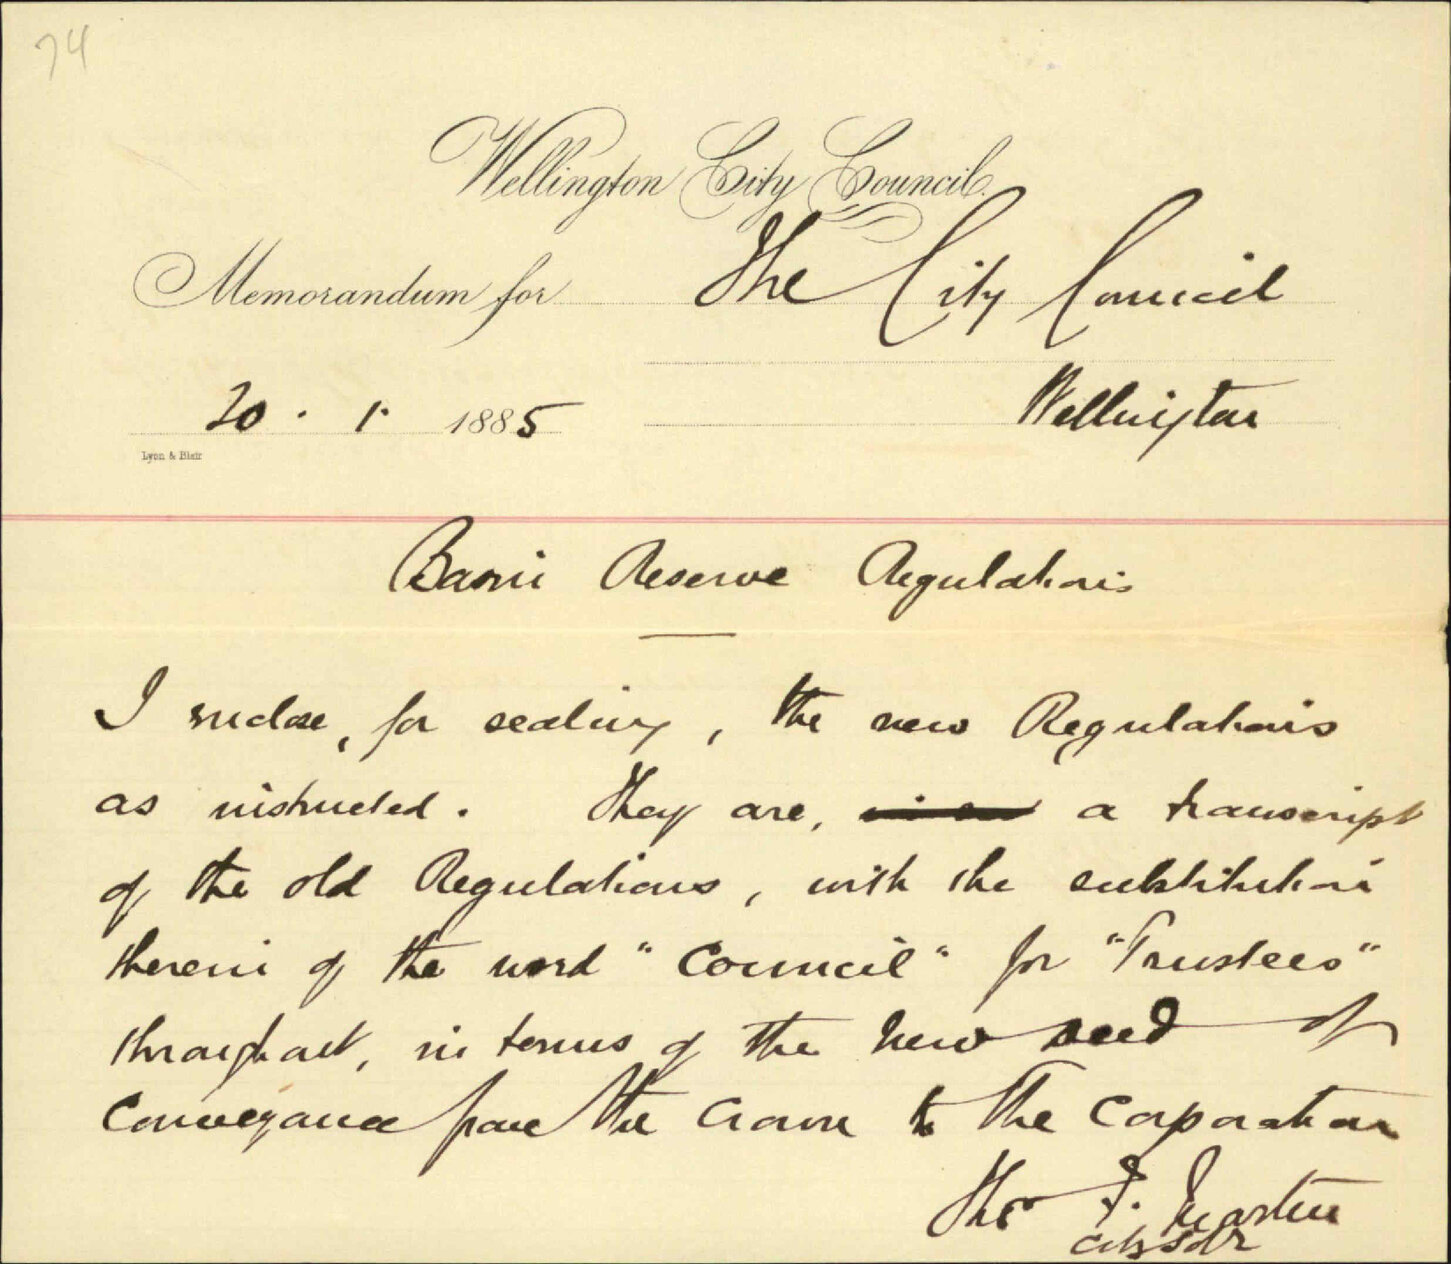 74
Wellington City Council.
Memorandum for The City Council
Wellington
20 . 1 . 1885
Lyon & Blair
Basin Reserve Regulations
I enclose, for sealing, the new Regulations
as instructed. They are, a transcript
of the old Regulations, with the substitution
therein of the word "Council" for "Trustees"
throughout, in terms of the new deed of
Conveyance from the Crown to the Corporation
Thos F. Martin
City Solr